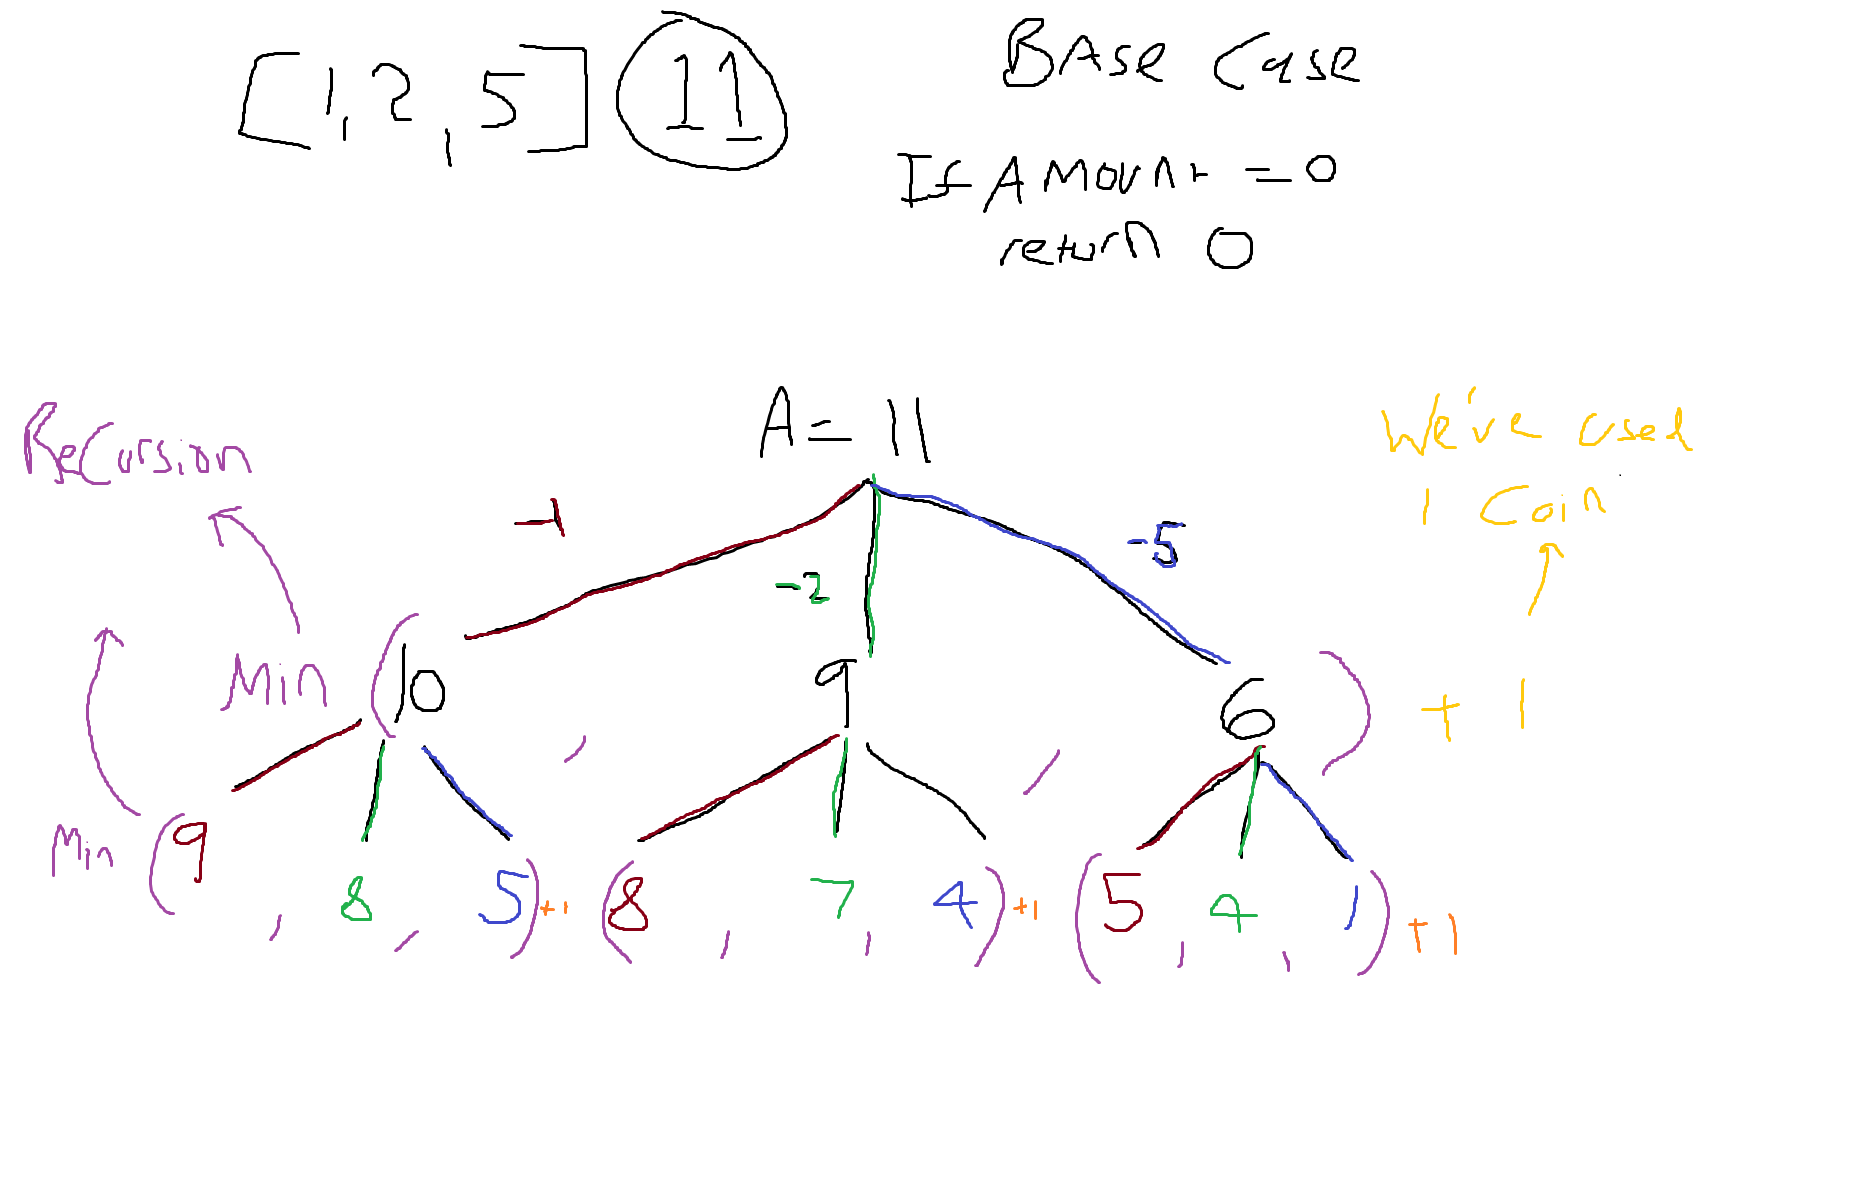 [1, 2, 5] 11
BASe Case
If AMount = 0
return 0
A = 11
Recursion
We've used
1 Coin
-1
-2
-5
Min (10, 9, 6) + 1
Min (9, 8, 5) +1 (8, 7, 4) +1 (5, 4, 1) +1